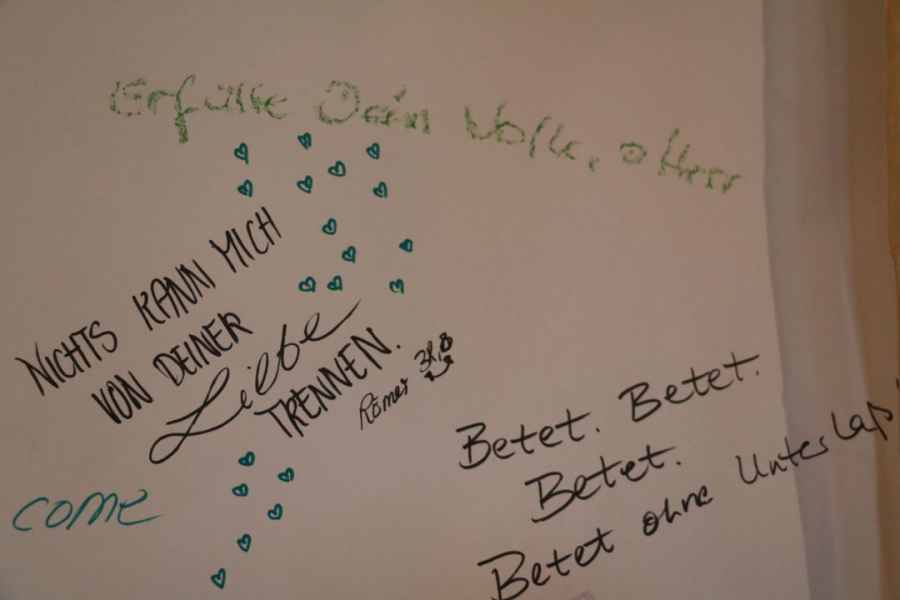 Erfülle Dein Volk, o Herr
NICHTS KANN MICH
VON DEINER
Liebe
TRENNEN.
Römer
come
Betet. Betet.
Betet.
Betet ohne Unterlaß